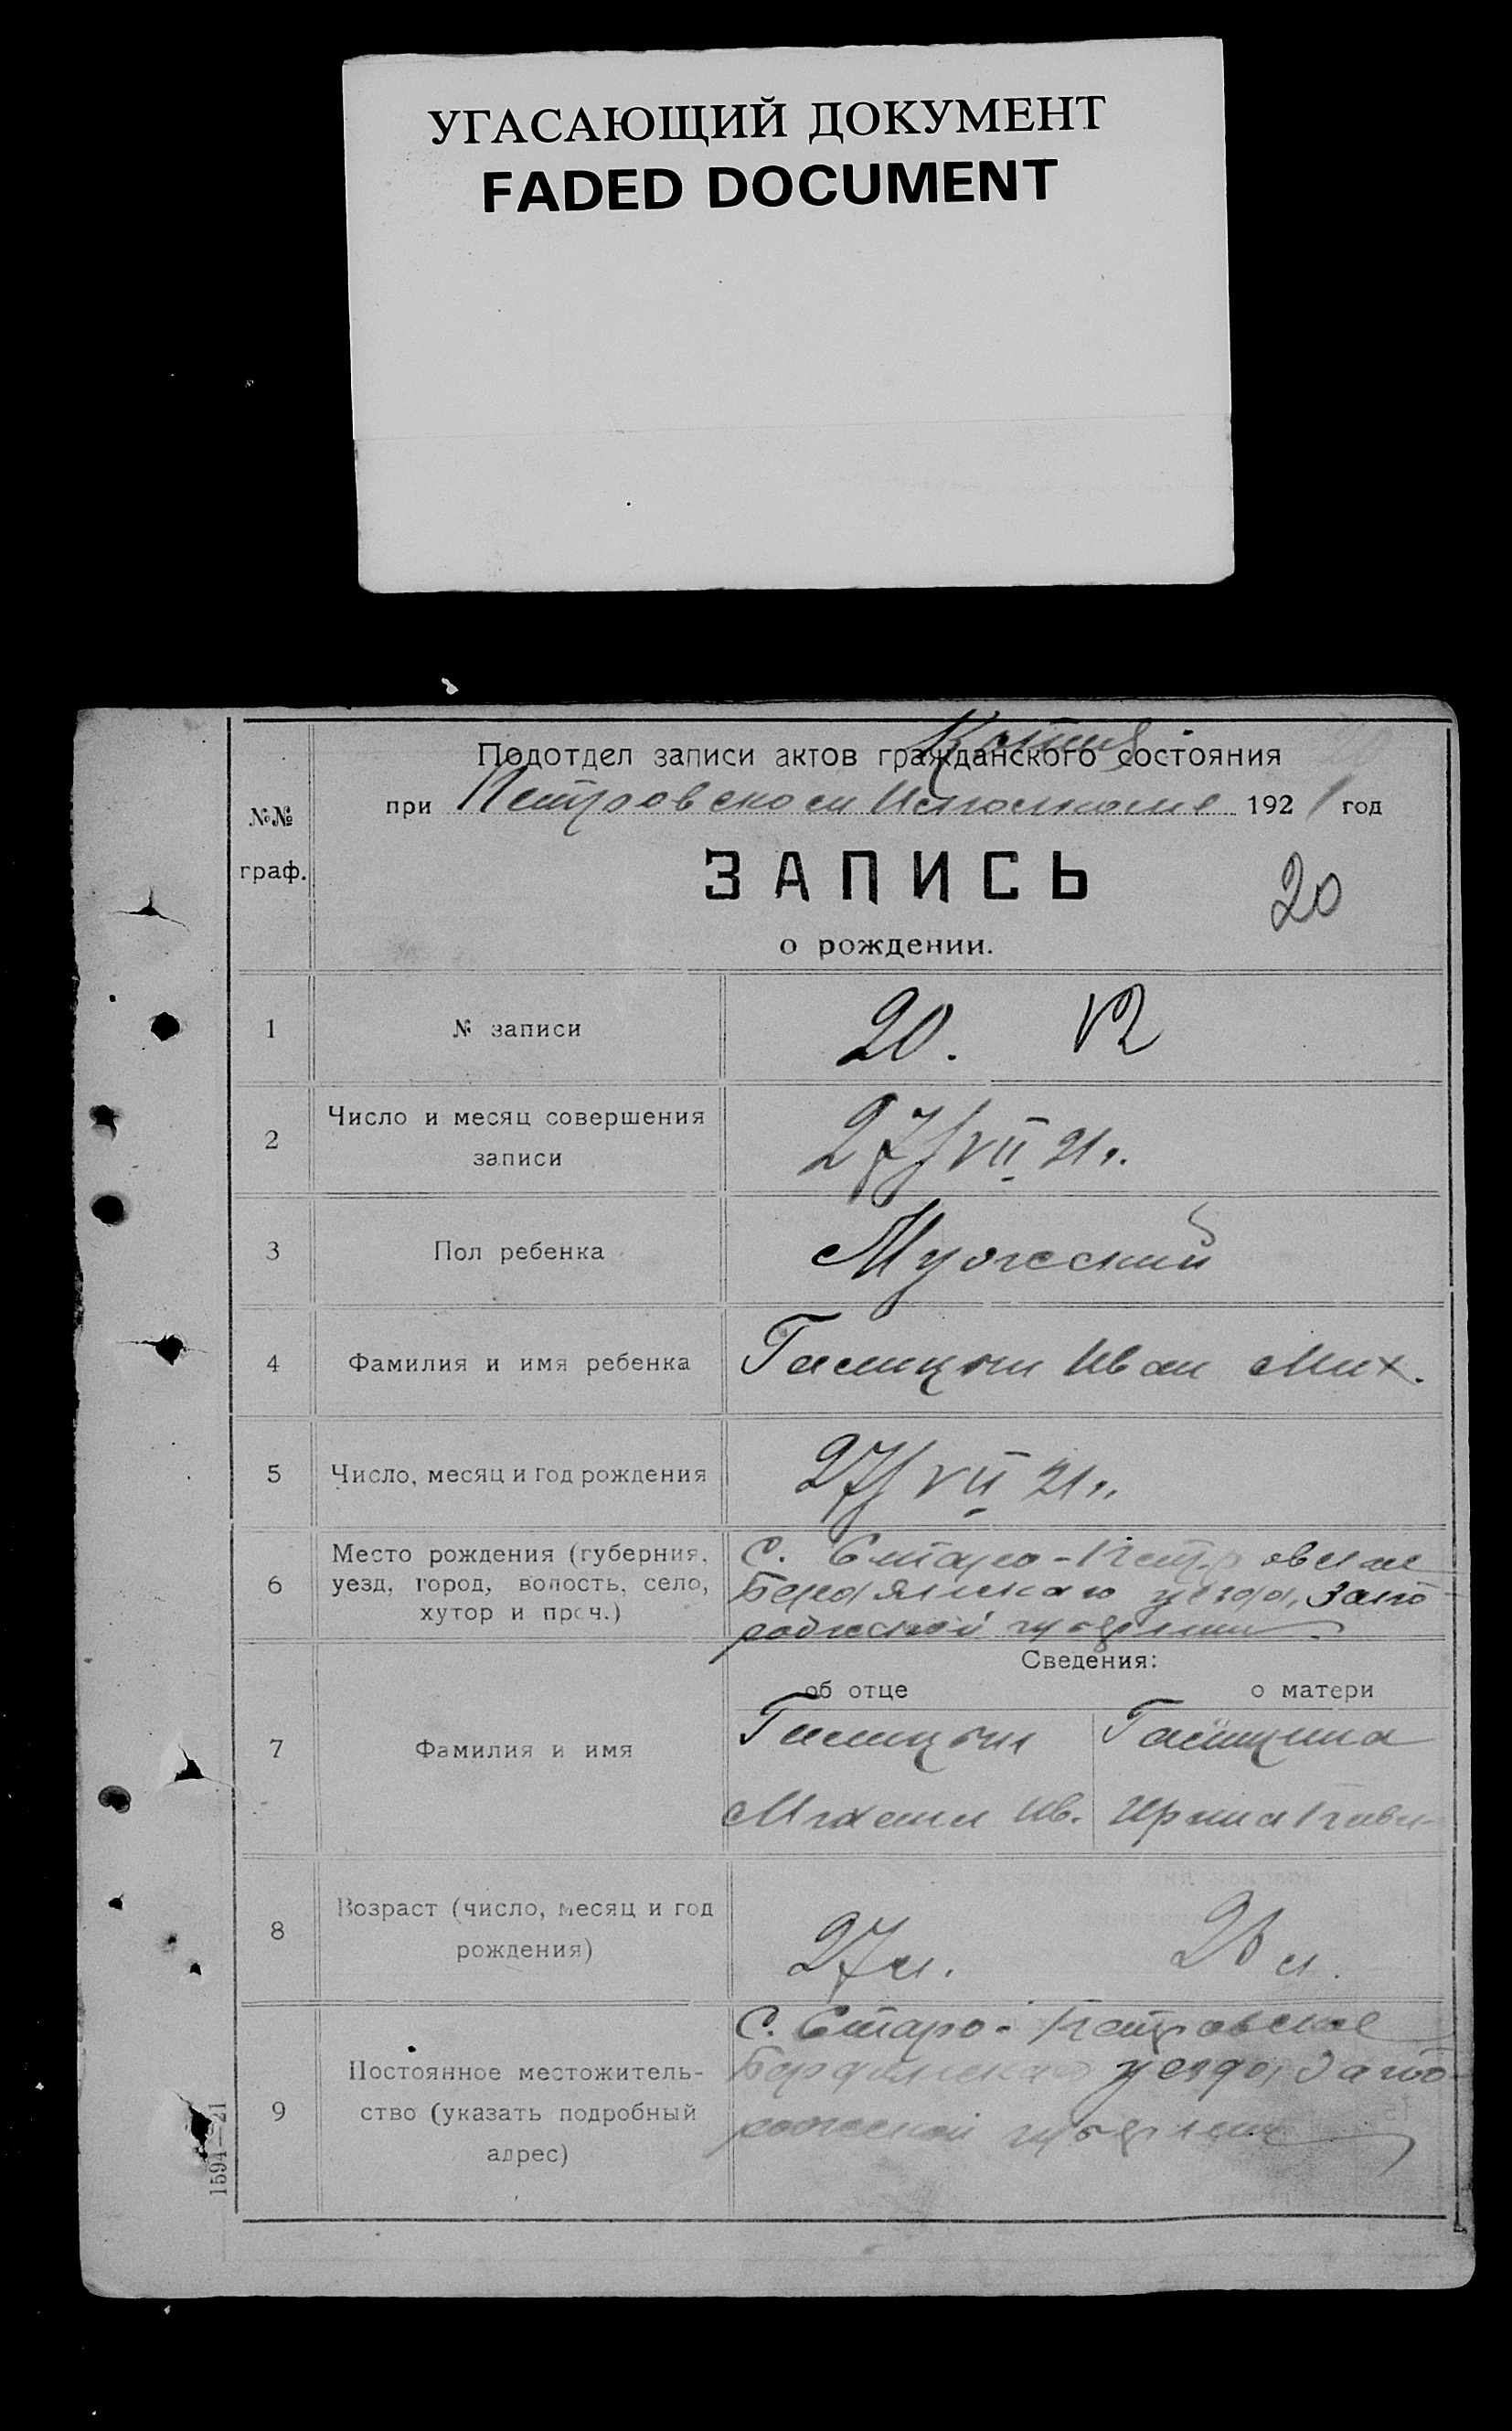 УГАСАЮЩИЙ ДОКУМЕНТ
FADED DOCUMENT
Копия
Подотдел записи актов гражданского состояния
при Петровском Исполкоме 1921 год
№№
граф.
ЗАПИСЬ
20
о рождении.
1 № записи 20.
2 Число и месяц совершения
записи 27/VII 21 г.
3 Пол ребенка Мужеский
4 Фамилия и имя ребенка Иван Мих.
5 Число, месяц и год рождения 27/VII 21 г.
6 Место рождения (губерния, С. Старо-Петровское
уезд, город, волость, село, Бердянского уезда, Запо-
хутор и проч.) рожской губернии
Сведения:
об отце о матери
7 Фамилия и имя
Михаил Ив. Ирина
8 Возраст (число, месяц и год
рождения) 27 л. л.
9 С. Старо-Петровское
Постоянное местожитель- Бердянского уезда, Запо-
ство (указать подробный рожской губернии
адрес)
1594—21